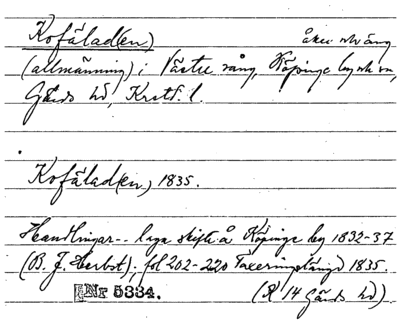 Kofälad(en) åker och äng
(allmänning) i Västre vång, Köpinge by och sn,
Gärds hd, Krist. l.
Kofälad(en), 1835.
Handlingar -- laga skifte å Köpinge by 1832-37
(B. J. Herbst); fol 202-220 Taxeringslängd 1835.
Nr 5334. (K 14 Gärds hd)